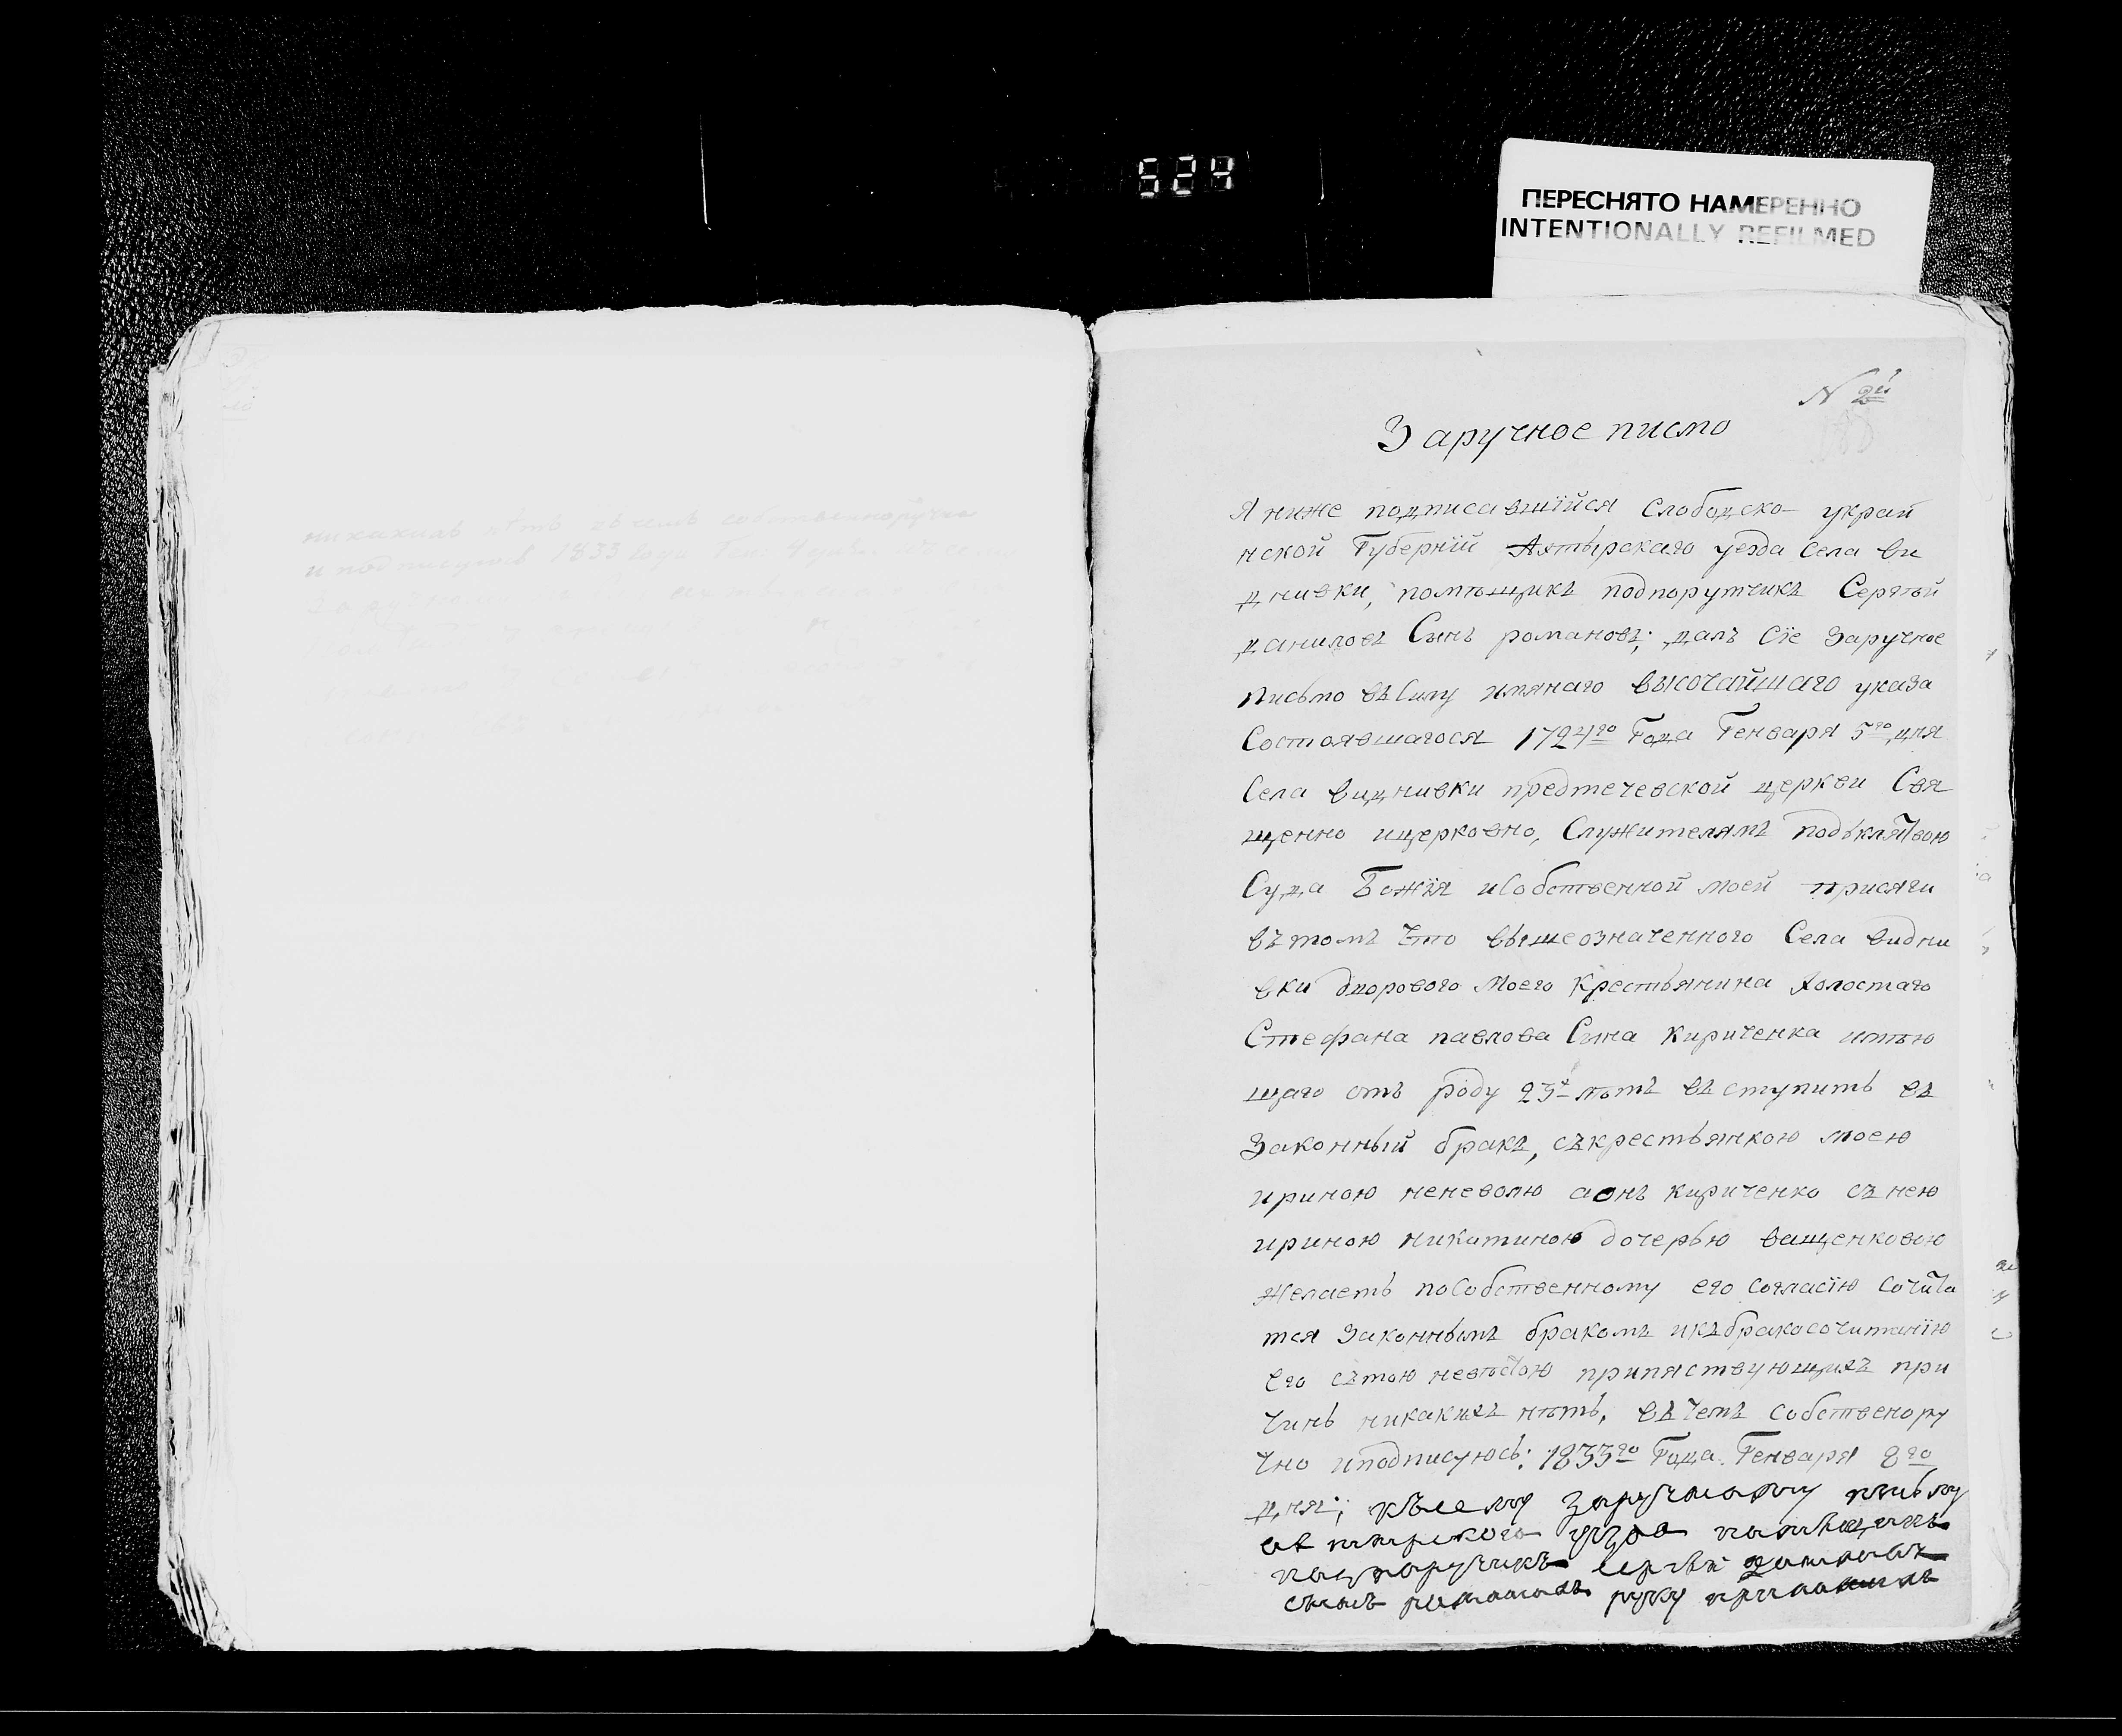 524
ПЕРЕСНЯТО НАМЕРЕННО
INTENTIONALLY REFILMED
никакихъ нѣтъ въ чемъ собственноручно
и подписуюсь 1833 года
N 2й
Заручное писмо
Я ниже подписавшїйся Слободско украй
нской Губернїй Ахтырскаго уезда Села ви
днивки, помѣщикъ подпорутчикъ Сергѣй
даниловъ Сынъ романовъ; далъ сїе Заручное
письмо въ Силу имянаго высочайшаго указа
Состоявшагося 1724го Года Генваря 5го дня
Села виднивки предтечевской церкви Свя
щенно ицерковно, Служителямъ подъклятвою
Суда Божїя иСобственной моей присяги
вътомъ Что вышеозначенного Села видни
вки дворового Моего Крестьянина Холостаго
Стефана павлова Сина Кириченка имѣю
щаго отъ роду 23х лѣтъ въступить въ
Законный бракъ, съкрестьянкою моею
ириною неневолю аонъ кириченко съ нею
ириною никитиною дочерью ващенковою
желаетъ поСобственному его согласїю сочита
тся Законнымъ бракомъ икъбракосочитанїю
его сътою невѣстою припяствующихъ при
Чинъ никакихъ нѣтъ, въ Чемъ Собственору
Чно иподписуюсь: 1833го Года Генваря 8го
дня; късему заручному письму
ахтырского уезда помѣщикъ
подпоручикъ сергѣй даниловъ
сынъ романовъ руку приложилъ